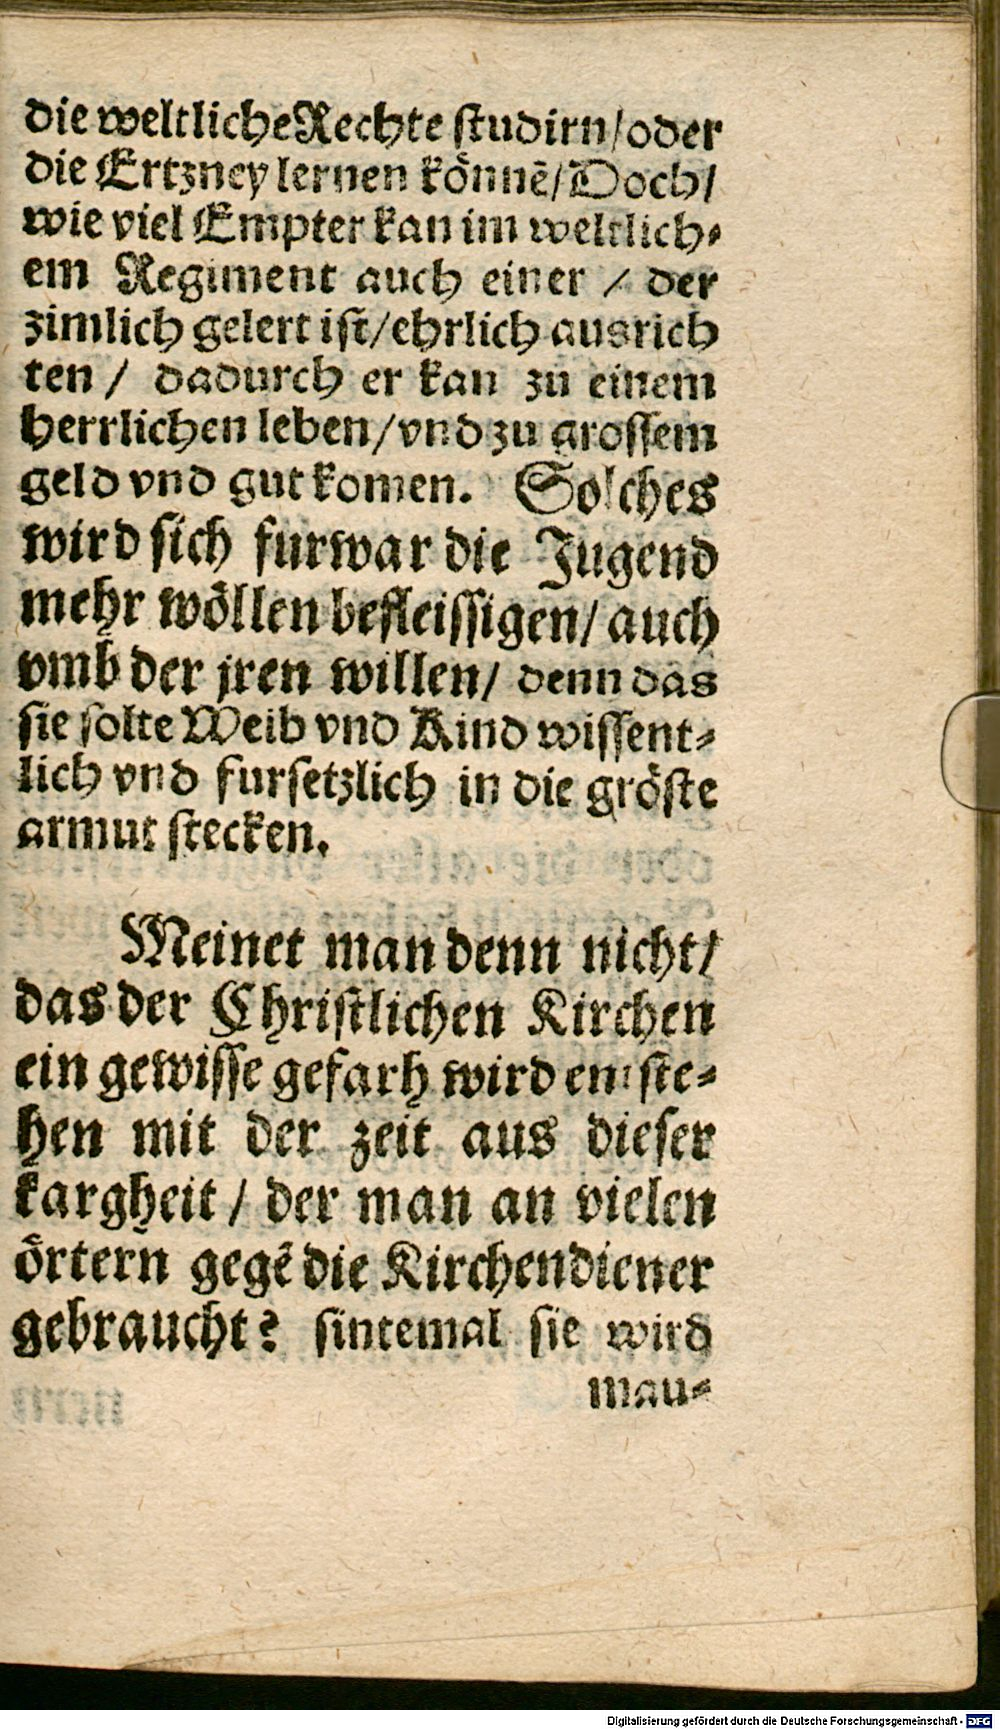 die weltliche Rechte studirn/oder
die Ertzney lernen könnē/Doch/
wie viel Empter kan im weltlich-
em Regiment auch einer / der
zimlich gelert ist/ehrlich ausrich
ten / dadurch er kan zu einem
herrlichen leben/vnd zu grossem
geld vnd gut komen. Solches
wird sich furwar die Jugend
mehr wöllen befleissigen/ auch
vmb der jren willen/ denn das
sie solte Weib vnd Kind wissent-
lich vnd fursetzlich in die gröste
armut stecken.
Meinet man denn nicht/
das der Christlichen Kirchen
ein gewisse gefarh wird entste-
hen mit der zeit aus dieser
kargheit / der man an vielen
örtern gegē die Kirchendiener
gebraucht? sintemal sie wird
mau-
Digitalisierung gefördert durch die Deutsche Forschungsgemeinschaft - DFG